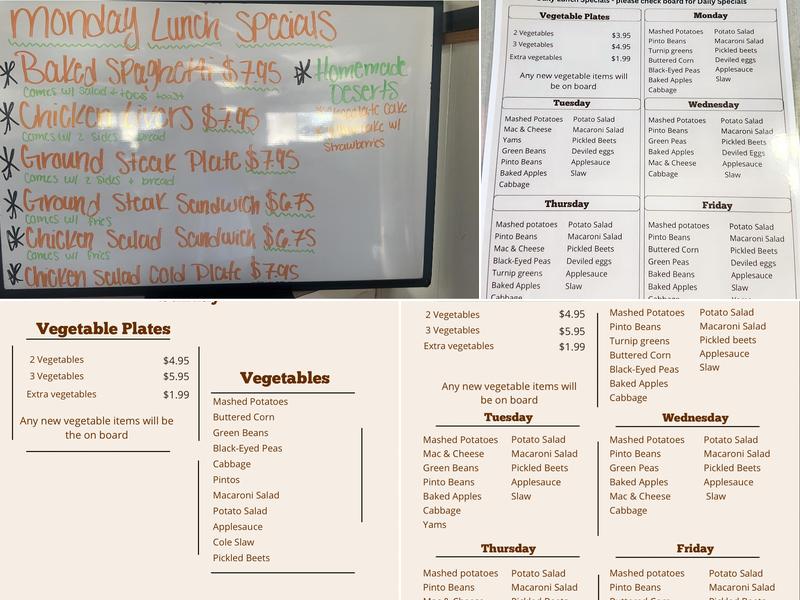 Monday Lunch Specials
Baked Spaghetti $7.95
Comes w/ salad + toast
Chicken Livers $7.95
Comes w/ 2 sides + bread
Ground Steak Plate $7.95
Comes w/ 2 sides + bread
Ground Steak Sandwich $6.75
Comes w/ fries
Chicken Salad Sandwich $6.75
Comes w/ fries
Chicken Salad Cold Plate $7.95
Homemade
Deserts
Cake
w/
Strawberries
Lunch Specials - please check board for Daily Specials
Vegetable Plates
2 Vegetables $3.95
3 Vegetables $4.95
Extra vegetables $1.99
Any new vegetable items will
be on board
Monday
Mashed Potatoes Potato Salad
Pinto Beans Macaroni Salad
Turnip greens Pickled beets
Buttered Corn Deviled eggs
Black-Eyed Peas Applesauce
Baked Apples Slaw
Cabbage
Tuesday
Mashed Potatoes Potato Salad
Mac & Cheese Macaroni Salad
Yams Pickled Beets
Green Beans Deviled Eggs
Pinto Beans Applesauce
Baked Apples Slaw
Cabbage
Wednesday
Mashed Potatoes Potato Salad
Pinto Beans Macaroni Salad
Green Peas Pickled Beets
Baked Apples Deviled Eggs
Mac & Cheese Applesauce
Cabbage Slaw
Thursday
Mashed potatoes Potato Salad
Pinto Beans Macaroni Salad
Mac & Cheese Pickled Beets
Black-Eyed Peas Deviled eggs
Turnip greens Applesauce
Baked Apples Slaw
Cabbage
Friday
Mashed Potatoes Potato Salad
Pinto Beans Macaroni Salad
Buttered Corn Pickled Beets
Green Peas Deviled eggs
Baked Beans Applesauce
Baked Apples Slaw
Vegetable Plates
2 Vegetables $4.95
3 Vegetables $5.95
Extra vegetables $1.99
Any new vegetable items will be
the on board
Vegetables
Mashed Potatoes
Buttered Corn
Green Beans
Black-Eyed Peas
Cabbage
Pintos
Macaroni Salad
Potato Salad
Applesauce
Cole Slaw
Pickled Beets
2 Vegetables $4.95
3 Vegetables $5.95
Extra vegetables $1.99
Any new vegetable items will
be on board
Mashed Potatoes Potato Salad
Pinto Beans Macaroni Salad
Turnip greens Pickled beets
Buttered Corn Applesauce
Black-Eyed Peas Slaw
Baked Apples
Cabbage
Tuesday
Mashed Potatoes Potato Salad
Mac & Cheese Macaroni Salad
Green Beans Pickled Beets
Pinto Beans Applesauce
Baked Apples Slaw
Cabbage
Yams
Wednesday
Mashed Potatoes Potato Salad
Pinto Beans Macaroni Salad
Green Peas Pickled Beets
Baked Apples Applesauce
Mac & Cheese Slaw
Cabbage
Thursday
Mashed potatoes Potato Salad
Pinto Beans Macaroni Salad
Pickled Beets
Friday
Mashed Potatoes Potato Salad
Pinto Beans Macaroni Salad
Pickled Beets